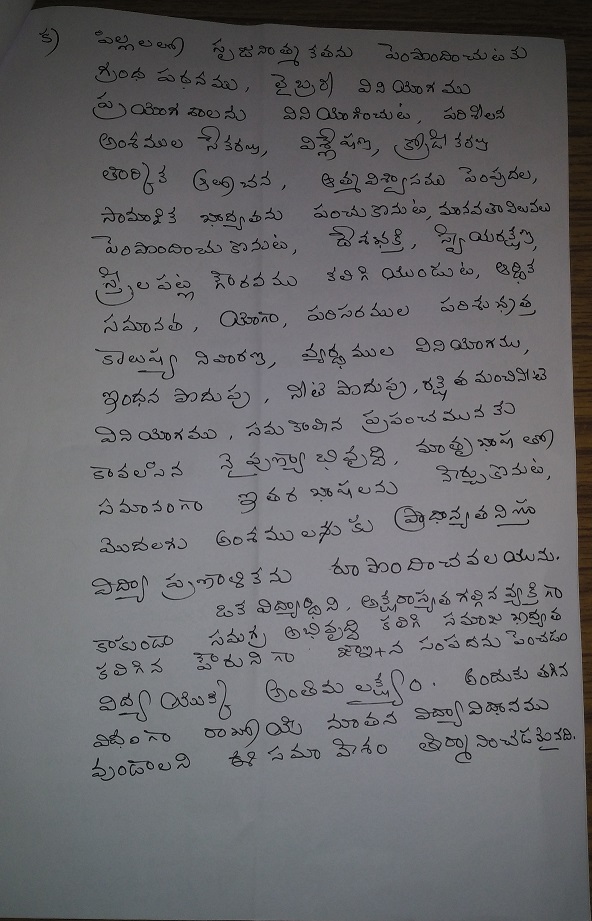 క) పిల్లలలో సృజనాత్మకతను పెంపొందించుటకు
గ్రంధ పఠనము, లైబ్రరీ వినియోగము
ప్రయోగశాలను వినియోగించుట, పరిశీలన
అంశముల సేకరణ, విశ్లేషణ, క్రోడీకరణ
తార్కిక ఆలోచన, ఆత్మవిశ్వాసము పెంపుదల,
సామాజిక బాధ్యతను పంచుకొనుట, మానవతా విలువలు
పెంపొందించుకొనుట, దేశభక్తి, స్వీయరక్షణ,
స్త్రీల పట్ల గౌరవము కలిగి యుండుట, ఆర్థిక
సమానత, యోగా, పరిసరముల పరిశుభ్రత
కాలుష్య నివారణ, వ్యర్థముల వినియోగము,
ఇంధన పొదుపు, నీటి పొదుపు, రక్షిత మంచినీటి
వినియోగము, సమకాలీన ప్రపంచమునకు
కావలసిన నైపుణ్యాభివృద్ధి, మాతృభాషతో
సమానంగా ఇతర భాషలను నేర్చుకొనుట,
మొదలగు అంశములకు ప్రాధాన్యతనిస్తూ
విద్యా ప్రణాళికను రూపొందించవలయును.
ఒక విద్యార్థిని, అక్షరాస్యత గల్గిన వ్యక్తిగా
కాకుండా సమగ్ర అభివృద్ధి కలిగి సమాజ బాధ్యత
కలిగిన పౌరునిగా సంపదను పెంచడం
విద్య యొక్క అంతిమ లక్ష్యం. అందుకు తగిన
విధంగా రాబోయే నూతన విద్యావిధానము
వుండాలని ఈ సమావేశం తీర్మానించడమైనది.